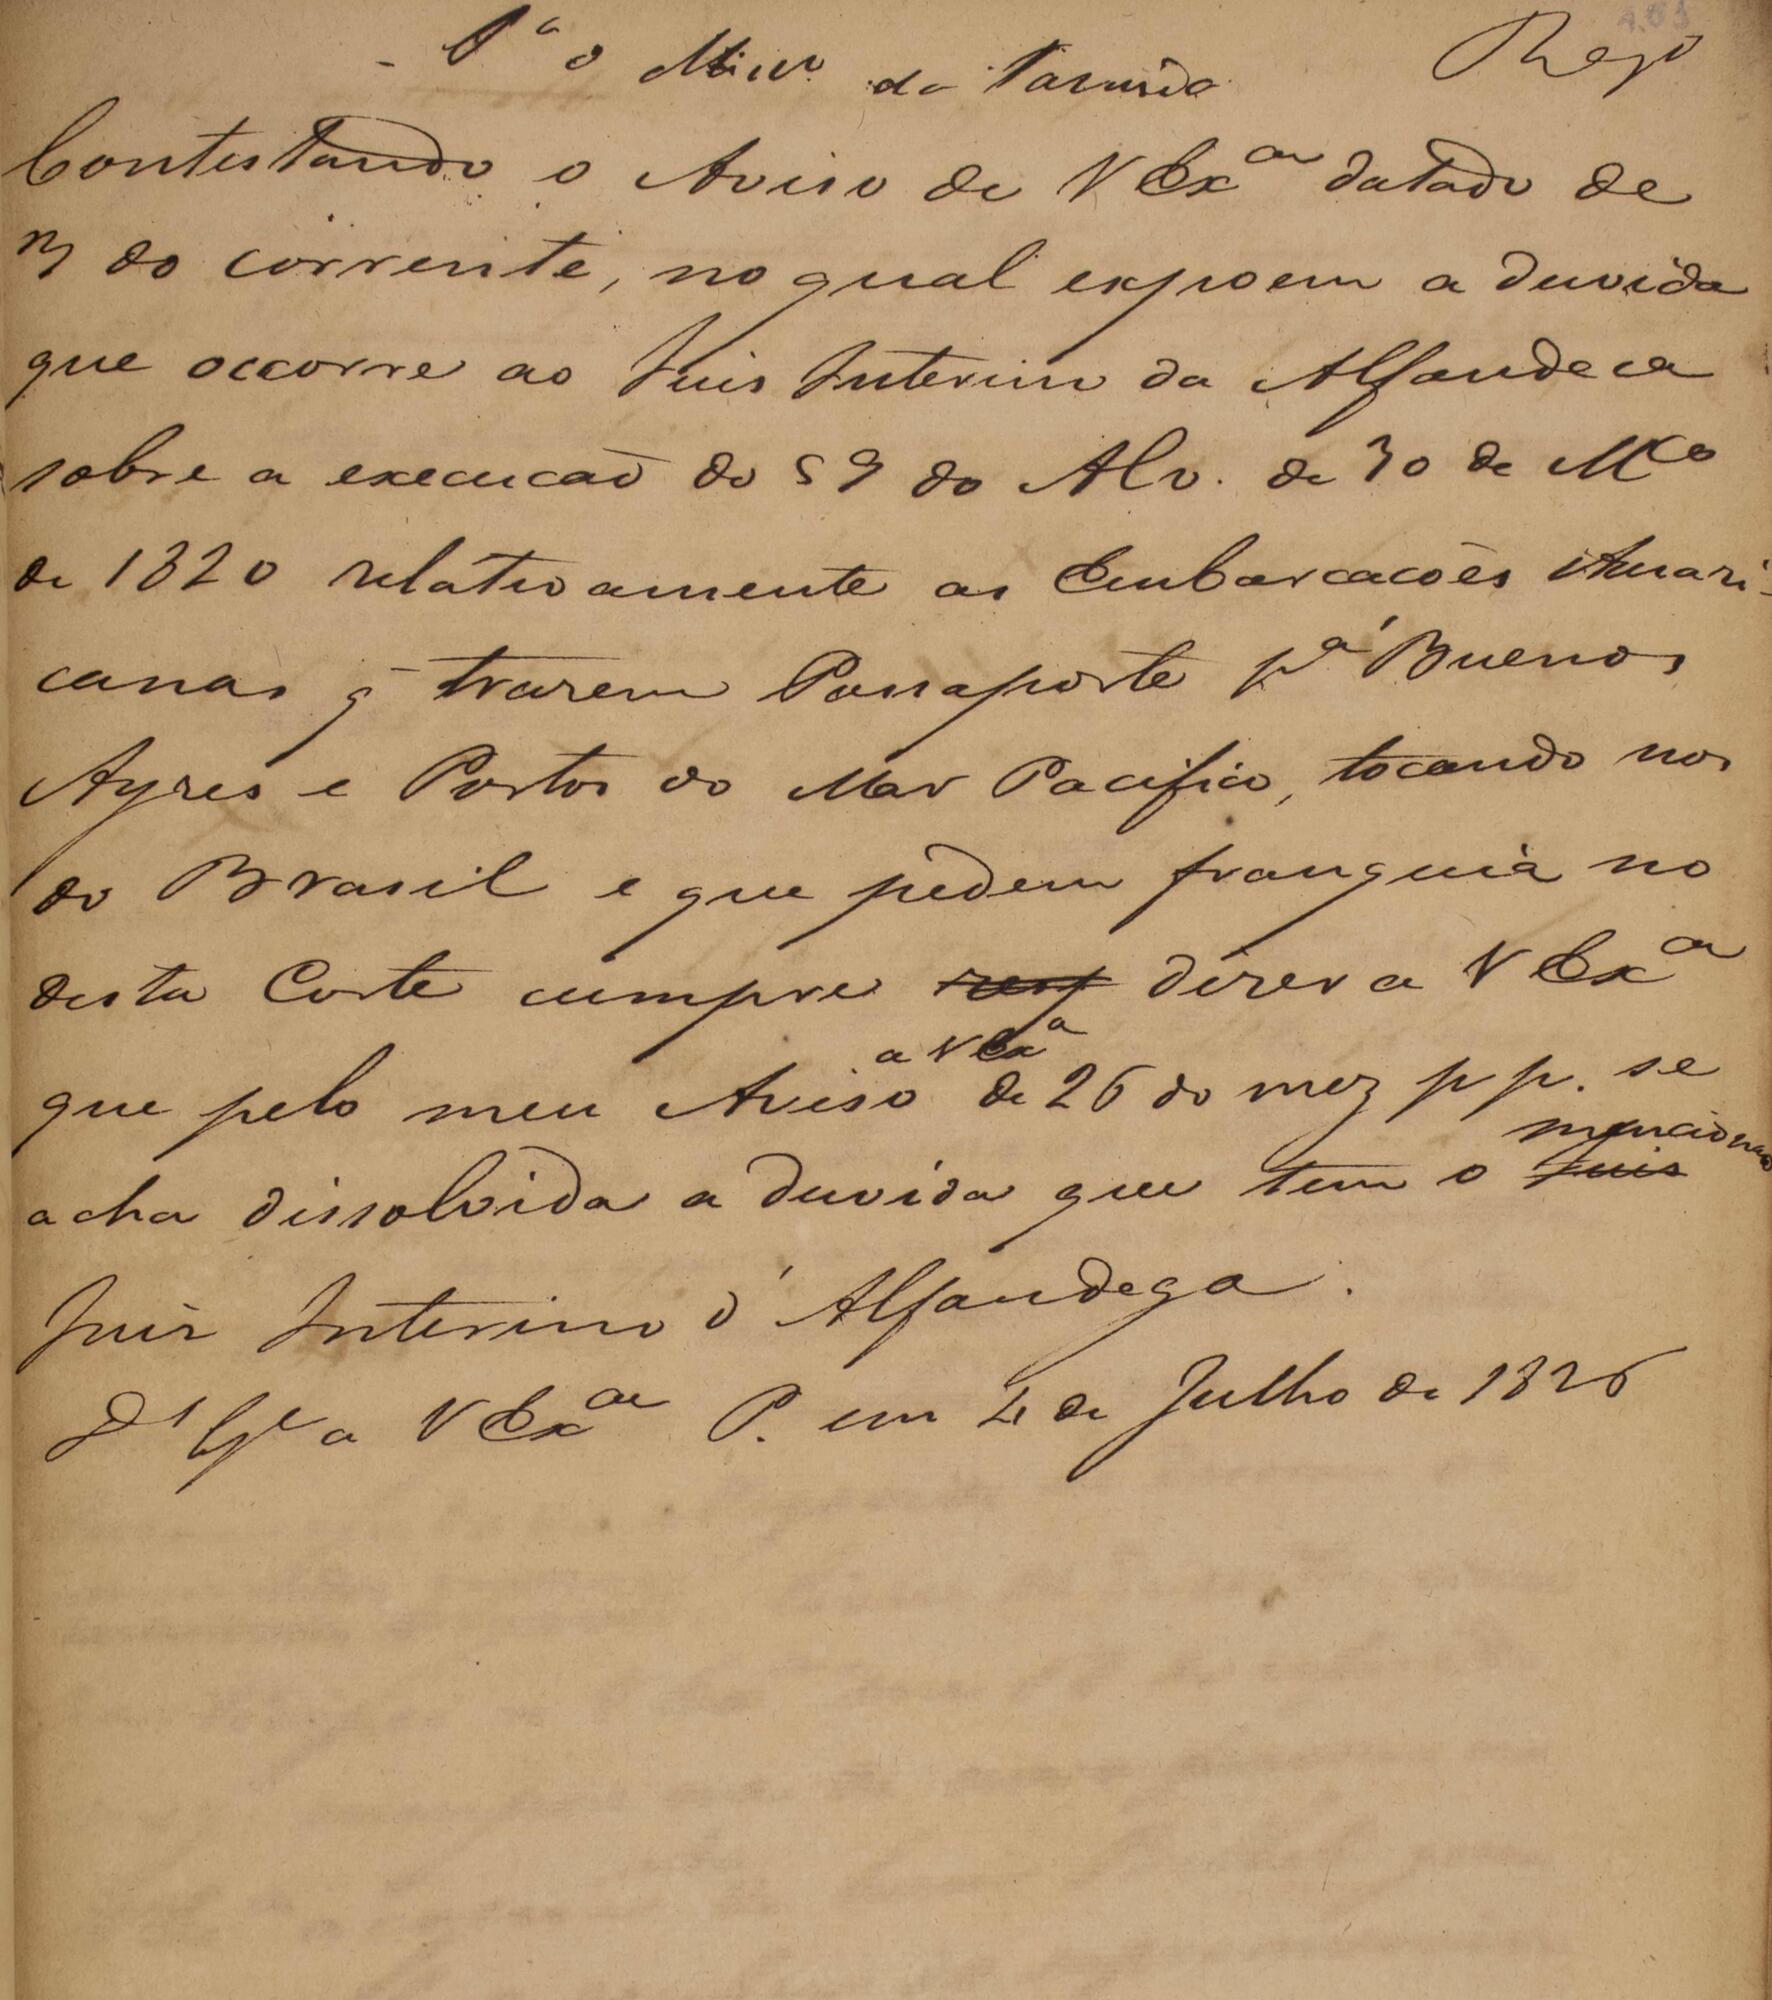 P.ª o Min.º da Fazenda Reg.º
Contestando o Aviso de V Ex.ª datado de
3 do corrente, no qual expoem a duvida
que occorre ao Juis Interim da Alfandeca
sobre a execucaõ do § 9 do Alv. de 30 de M.ço
de 1820 relativamente as Embarcacoẽs Amari-
canas q̃ trazem Passaporte p.ª Buenos
Ayres e Portos do Mar Pacifico, tocando nos
do Brasil e que pedem franquia no
desta Corte cumpre resp dizer a V Ex.ª
a V Ex.ª
que pelo meu Aviso de 26 do mez p p. se
mencionado
acha dissolvida a duvida que tem o Juis
Juis Interino d'Alfandega.
D.s G.e a V Ex.ª P. em 4 de Julho de 1826